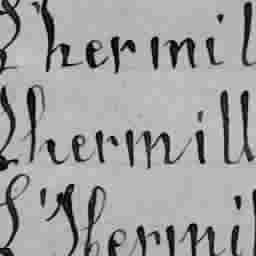 L'hermil
Lhermill
L'Thermil